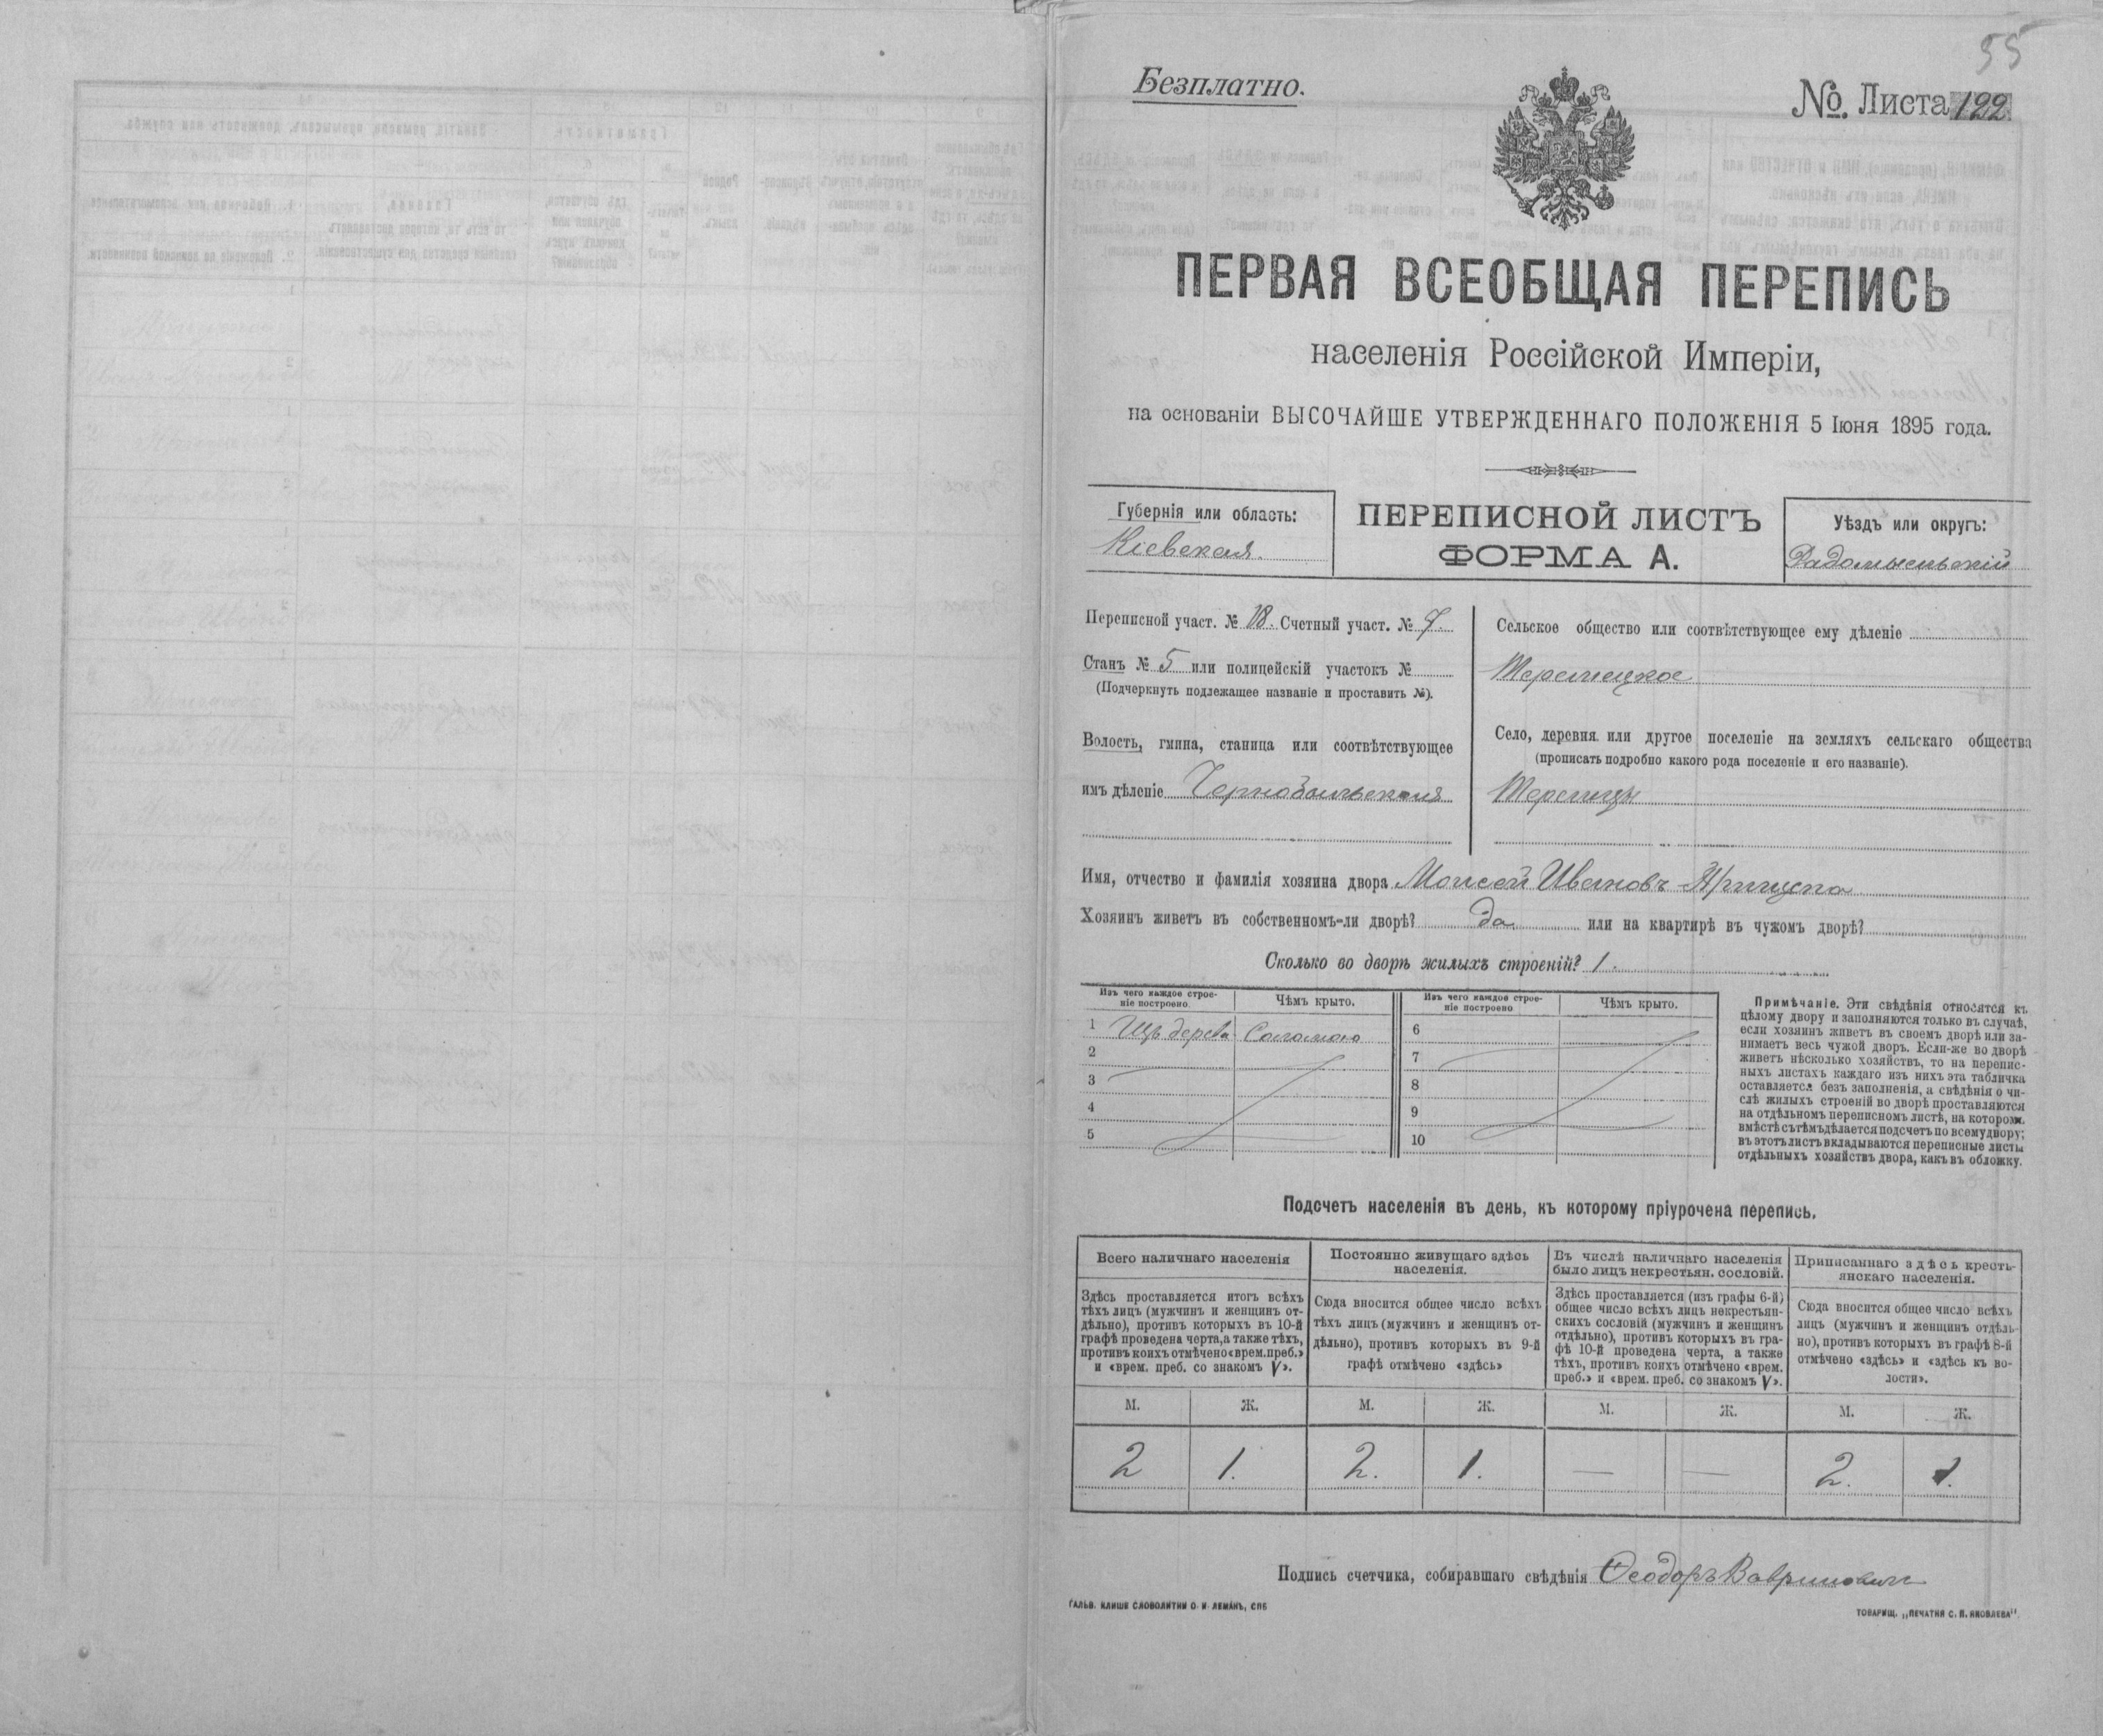 55
Безплатно.
№. Листа 122.
ПЕРВАЯ ВСЕОБЩАЯ ПЕРЕПИСЬ
населенія Россійской Имперіи,
на основаніи ВЫСОЧАЙШЕ УТВЕРЖДЕННАГО ПОЛОЖЕНІЯ 5 Іюня 1895 года.
Губернія или область:
Кіевская.
ПЕРЕПИСНОЙ ЛИСТЪ
ФОРМА А.
Уѣздъ или округъ:
Радомысльскій
Переписной участ. № 18. Счетный участ. № 7.
Станъ № 5 или полицейскій участокъ №
(Подчеркнуть подлежащее названіе и проставить №).
Волость, гмина, станица или соотвѣтствующее
имъ дѣленіе Чернобыльская
Сельское общество или соотвѣтствующее ему дѣленіе
Теремецкое
Село, деревня или другое поселеніе на земляхъ сельскаго общества
(прописать подробно какого рода поселеніе и его названіе).
Теремцы
Имя, отчество и фамилія хозяина двора Моисей Ивановъ
Хозяинъ живетъ въ собственномъ-ли дворѣ? да или на квартирѣ въ чужомъ дворѣ?
Сколько во дворѣ жилыхъ строеній? 1.
Изъ чего каждое строе-
ніе построено.
Чѣмъ крыто.
Изъ чего каждое строе-
ніе построено
Чѣмъ крыто.
1 Изъ дерева Соломою
2
3
4
5
6
7
8
9
10
Примѣчаніе. Эти свѣдѣнія относятся къ
цѣлому двору и заполняются только въ случаѣ,
если хозяинъ живетъ въ своемъ дворѣ или за-
нимаетъ весь чужой дворъ. Если-же во дворѣ
живетъ нѣсколько хозяйствъ, то на перепис-
ныхъ листахъ каждаго изъ нихъ эта табличка
оставляется безъ заполненія, а свѣдѣнія о чи-
слѣ жилыхъ строеній во дворѣ проставляются
на отдѣльномъ переписномъ листѣ, на котором
вмѣстѣ съ тѣмъ дѣлается подсчетъ по всему двору;
въ этотъ листъ вкладываются переписные листы
отдѣльныхъ хозяйствъ двора, какъ въ обложку.
Подсчетъ населенія въ день, къ которому пріурочена перепись.
Всего наличнаго населенія
Здѣсь проставляется итогъ всѣхъ
тѣхъ лицъ (мужчинъ и женщинъ от-
дѣльно), противъ которыхъ въ 10-й
графѣ проведена черта, а также тѣхъ,
противъ коихъ отмѣчено «врем. преб.»
и «врем. преб. со знакомъ V».
Постоянно живущаго здѣсь
населенія.
Сюда вносится общее число всѣхъ
тѣхъ лицъ (мужчинъ и женщинъ от-
дѣльно), противъ которыхъ въ 9-й
графѣ отмѣчено «здѣсь»
Въ числѣ наличнаго населенія
было лицъ некрестьян. сословій.
Здѣсь проставляется (изъ графы 6-й)
общее число всѣхъ лицъ некрестьян-
скихъ сословій (мужчинъ и женщинъ
отдѣльно), противъ которыхъ въ гра-
фѣ 10-й проведена черта, а также
тѣхъ, противъ коихъ отмѣчено «врем.
преб.» и «врем. преб. со знакомъ V».
Приписаннаго здѣсь кресть-
янскаго населенія.
Сюда вносится общее число всѣхъ
лицъ (мужчинъ и женщинъ отдѣль-
но), противъ которыхъ въ графѣ 8-й
отмѣчено «здѣсь» и «здѣсь къ во-
лости».
М. Ж. М. Ж. М. Ж. М. Ж.
2 1. 2. 1. — — 2. 1.
Подпись счетчика, собиравшаго свѣдѣнія Ѳеодоръ
ГАЛЬВ. КЛИШЕ СЛОВОЛИТНИ О. И. ЛЕМАНЪ, СПБ
ТОВАРИЩ. „ПЕЧАТНЯ С. П. ЯКОВЛЕВА".